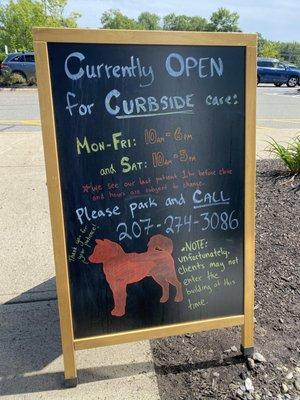 Currently OPEN
for CURBSIDE care:
MON-FRI: 10AM-6PM
and SAT: 10AM-5PM
*We see our last patient 1hr before close
and hours are subject to change.
Please park and CALL
207-274-3086
Thank you for
your patience!
*NOTE:
Unfortunately,
clients may not
enter the
building at
this time.